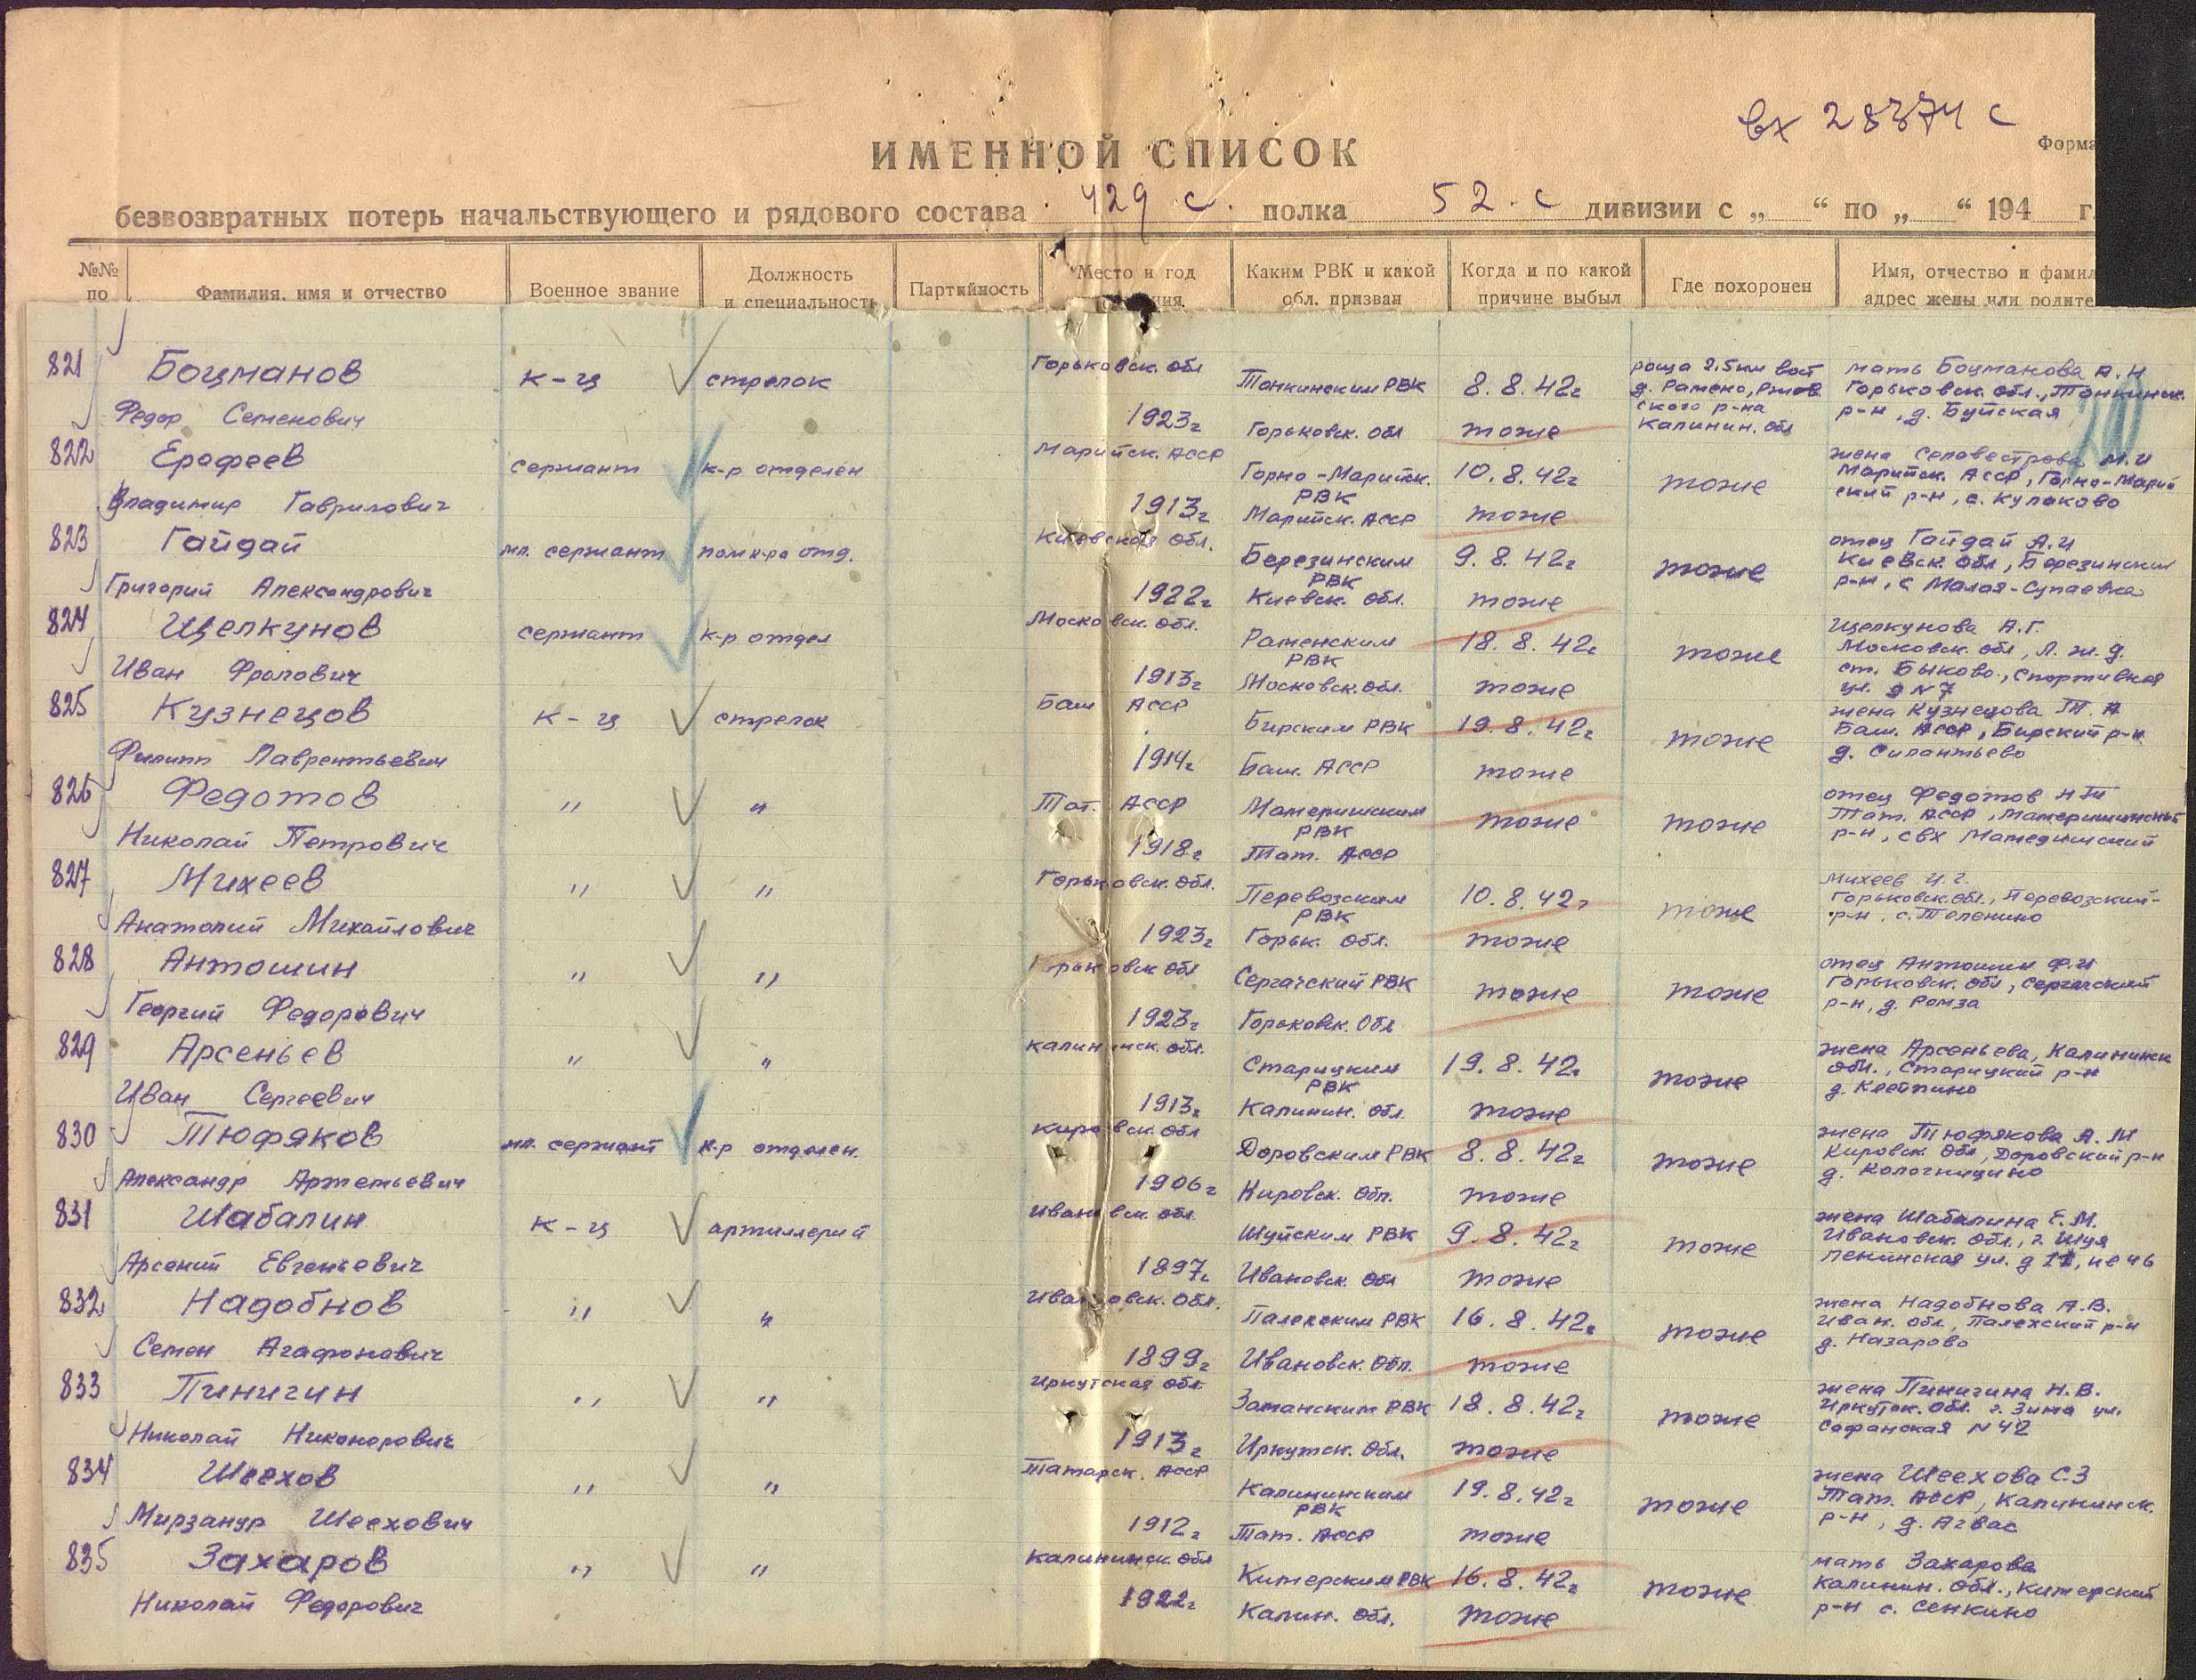 вх 28374 с
ИМЕННОЙ СПИСОК
Форма
безвозвратных потерь начальствующего и рядового состава 429 с. полка 52. с дивизии с „ “ по „ “ 194 г.
№№ по
Фамилия, имя и отчество
Военное звание
Должность и специальность
Партийность
Место и год
Каким РВК и какой обл. призван
Когда и по какой причине выбыл
Где похоронен
Имя, отчество и фамил
адрес жены или родите
821 Боцманов Федор Семенович
к-ц стрелок
Горьковск. обл 1923г
Тонкинским РВК Горьковск. обл
8.8.42г тоже
роща 2.5км вост д. Рамено, Ржевского р-на Калинин. обл
мать Боцманова А.Н
Горьковск. обл., Тонкинск. р-н, д. Буйская
200
822 Ерофеев Владимир Гаврилович
сержант к-р отделен
Марийск. АССР 1913г
Горно-Марийск. РВК Марийск. АССР
10.8.42г тоже
тоже
жена Селовестрова М.И
Марийск. АССР, Горно-Марийский р-н, с. Кулаково
823 Гайдай Григорий Александрович
мл. сержант пом к-ра отд.
Киевская обл. 1922г
Березинским РВК Киевск. обл.
9.8.42г тоже
тоже
отец Гайдай А.И
Киевск. обл, Березинский р-н, с Малая-Супоевка
824 Щелкунов Иван Фролович
сержант к-р отдел
Московск. обл. 1913г
Раменским РВК Московск. обл.
18.8.42г тоже
тоже
Щелкунова А.Г.
Московск. обл, Л. ж.д. ст. Быково, Спортивная ул. д N7
825 Кузнецов Филипп Лаврентьевич
к-ц стрелок
Баш АССР 1914г
Бирским РВК Баш. АССР
19.8.42г тоже
тоже
жена Кузнецова Т.А
Баш. АССР, Бирский р-н д. Силантьево
826 Федотов Николай Петрович
" "
Тат. АССР 1918г
РВК Тат. АССР
тоже
тоже
отец Федотов
Тат. АССР, р-н, свх
827 Михеев Анатолий Михайлович
" "
Горьковск. обл. 1923г
Перевозским РВК Горьк. обл.
10.8.42г тоже
тоже
Михеев
Горьковск. обл., Перевозский р-н, с. Теленино
828 Антошин Георгий Федорович
" "
Горьковск обл 1923г
Сергачский РВК Горьковск. обл
тоже
тоже
отец Антошин Ф.И
Горьковск. обл, Сергачский р-н, д. Ромза
829 Арсеньев Иван Сергеевич
" "
Калининск. обл. 1913г
Старицким РВК Калинин. обл.
19.8.42г тоже
тоже
жена Арсеньева, Калининск обл., Старицкий р-н
830 Тюфяков Александр Артемьевич
мл. сержант к-р отделен.
Кировск. обл 1906г
Доровским РВК Кировск. обл.
8.8.42г тоже
тоже
жена Тюфякова А.М
Кировск. обл, Доровский р-н
831 Шабалин Арсений Евгеньевич
к-ц артиллерий
Ивановск. обл. 1897г
Шуйским РВК Ивановск. обл
9.8.42г тоже
тоже
жена Шабалина Е.М.
Ивановск. обл., г. Шуя Ленинская ул. д 11, кв 46
832 Надобнов Семен Агафонович
" "
Ивановск. обл. 1899г
Палехским РВК Ивановск. обл.
16.8.42г тоже
тоже
жена Надобнова А.В.
Иван. обл., Палехский р-н д. Назарово
833 Пинигин Николай Никонорович
" "
Иркутская обл 1913г
Заманским РВК Иркутск. обл.
18.8.42г тоже
тоже
жена Пинигина Н.В.
Иркутск. обл. г. Зима ул. N 42
834 Шеехов Мирзанур Шеехович
" "
Татарск. АССР 1912г
Калининским РВК Тат. АССР
19.8.42г тоже
тоже
жена Шеехова С.З
Тат. АССР, Калининск. р-н, д. Агвас
835 Захаров Николай Федорович
" "
Калининск. обл 1922г
Кимерским РВК Калин. обл.
16.8.42г тоже
тоже
мать Захарова
Калинин. обл., Кимерский р-н с. Сенкино